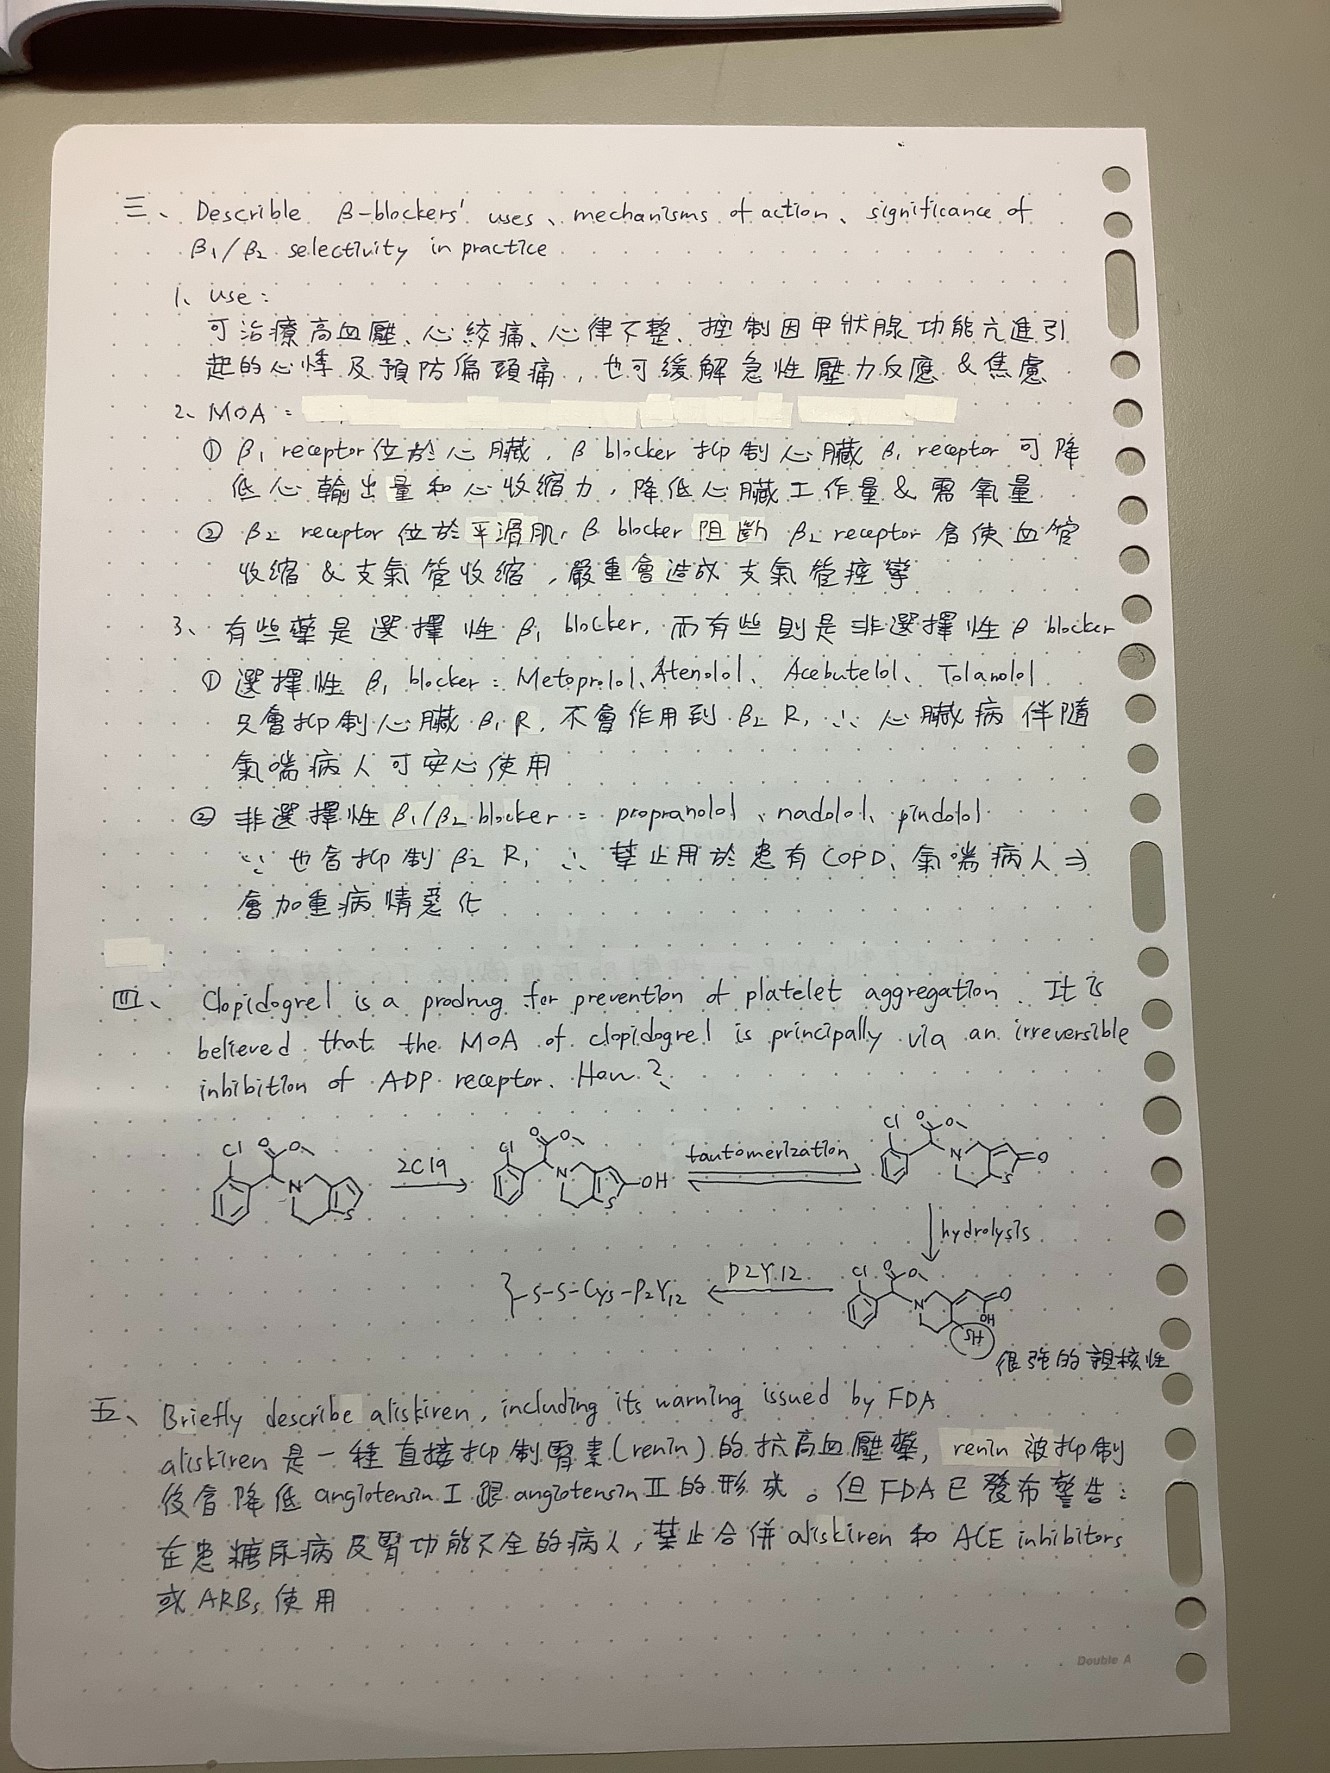 三、Describle β-blockers' uses、mechanisms of action、significance of
β₁/β₂ selectivity in practice
1、use：
可治療高血壓、心絞痛、心律不整、控制因甲狀腺功能亢進引
起的心悸及預防偏頭痛，也可緩解急性壓力反應 & 焦慮
2、MOA：
① β₁ receptor 位於心臟，β blocker 抑制心臟 β₁ receptor 可降
低心輸出量和心收縮力，降低心臟工作量 & 需氧量
② β₂ receptor 位於平滑肌，β blocker 阻斷 β₂ receptor 會使血管
收縮 & 支氣管收縮，嚴重會造成支氣管痙攣
3、有些藥是選擇性 β₁ blocker，而有些則是非選擇性 β blocker
① 選擇性 β₁ blocker：Metoprolol、Atenolol、Acebutelol、Tolanolol
只會抑制心臟 β₁ R，不會作用到 β₂ R，∴ 心臟病伴隨
氣喘病人可安心使用
② 非選擇性 β₁/β₂ blocker：propranolol、nadolol、pindolol
∵ 也會抑制 β₂ R，∴ 禁止用於患有 COPD、氣喘病人 ⇒
會加重病情惡化
四、Clopidogrel is a prodrug for prevention of platelet aggregation. It is
believed that the MOA of clopidogrel is principally via an irreversible
inhibition of ADP receptor. How?
Cl O O N S
2C19
Cl O O N S OH
tautomerization
Cl O O N S O
hydrolysis
Cl O O N O OH SH
很強的親核性
P2Y12
S-S-Cys-P₂Y₁₂
五、Briefly describe aliskiren, including its warning issued by FDA
aliskiren 是一種直接抑制腎素(renin)的抗高血壓藥，renin 被抑制
後會降低 angiotensin I 跟 angiotensin II 的形成。但 FDA 已發布警告：
在患糖尿病及腎功能不全的病人，禁止合併 aliskiren 和 ACE inhibitors
或 ARBs 使用
Double A